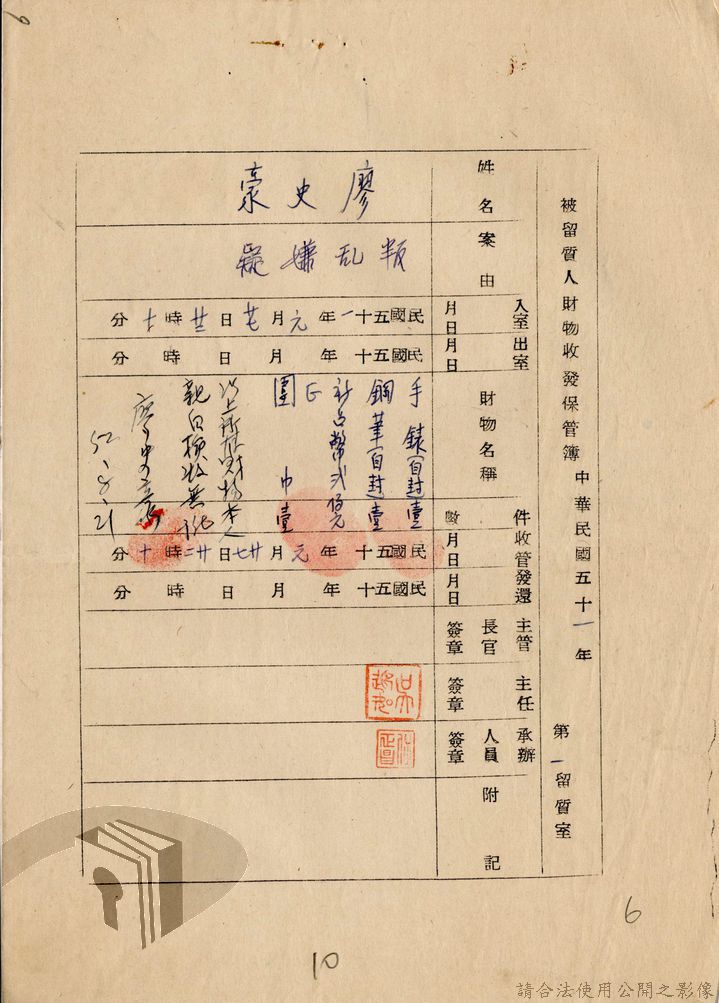 6
被留質人財物收發保管簿 中華民國五十一年 第一留質室
姓名 廖史豪
案由 叛乱嫌疑
入室月日 民國五十一年元月廿七日廿三時十分
出室月日 民國五十年月日時分
財物名稱
件數
手錶一百封壹
鋼筆一百封壹
新台幣弍佰元
正
圍巾壹
以上所有財物本人
親自檢收無訛
廖史豪
52、
收管月日 民國五十年元月廿七日廿二時十分
發還月日 民國五十年月日時分
主管長官簽章
主任簽章
承辦人員簽章
附記
6
10
請合法使用公開之影像